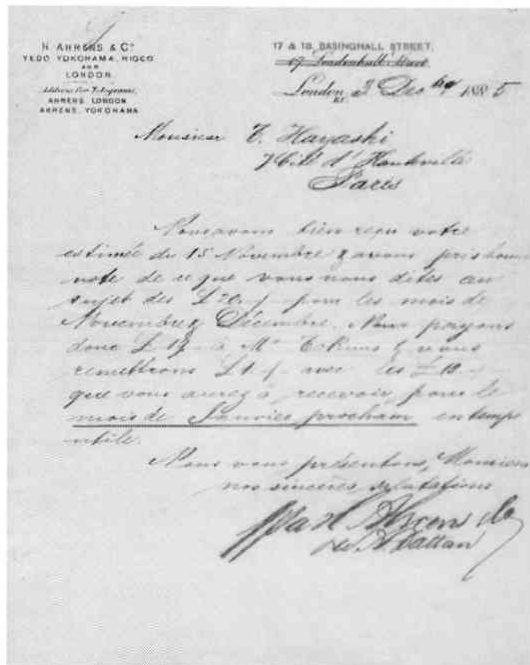 H. AHRENS & Co
YEDO YOKOHAMA, HIOGO
AND
LONDON.
Address for Telegrams,
AHRENS. LONDON
AHRENS. YOKOHAMA
17 & 18, BASINGHALL STREET,
London 3 Dec 1885
E.C.
Monsieur T. Hayashi
7 Cité d'Hauteville
Paris
Nous avons bien reçu votre
estimée du 15 Novembre & avons pris bonne
note de ce que vous nous dites au
sujet des £ 20.-/- pour les mois de
Novembre & Décembre. Nous payons
donc £ 19 à Mr & vous
remettrons £ 1 -/- avec les £ 19.-/-
que vous aurez à recevoir pour le
mois de Janvier prochain en temps
utile.
Nous vous présentons, Monsieur
nos sincères salutations
H. Ahrens & Co